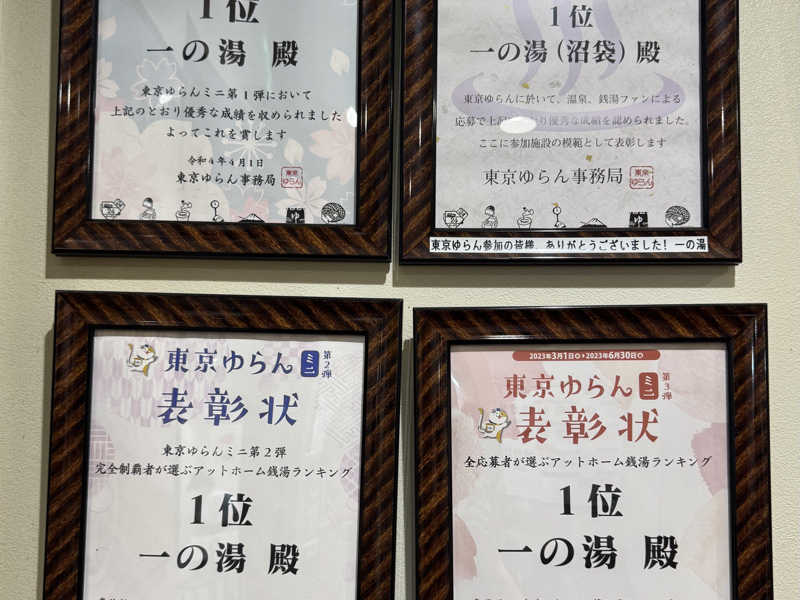 1位
一の湯 殿
東京ゆらんミニ第1弾において
上記のとおり優秀な成績を収められました
よってこれを賞します
令和4年4月1日
東京ゆらん事務局
東京
ゆらん
1位
一の湯(沼袋)殿
東京ゆらんに於いて、温泉、銭湯ファンによる
応募で上記のとおり優秀な成績を認められました。
ここに参加施設の模範として表彰します
東京ゆらん事務局
東京
ゆらん
ゆ
ゆ
東京ゆらん参加の皆様、ありがとうございました! 一の湯
東京ゆらん ミニ 第2弾
表彰状
東京ゆらんミニ第2弾
完全制覇者が選ぶアットホーム銭湯ランキング
1位
一の湯 殿
2023年3月1日㊌▶2023年6月30日㊎
東京ゆらん ミニ 第3弾
表彰状
全応募者が選ぶアットホーム銭湯ランキング
1位
一の湯 殿